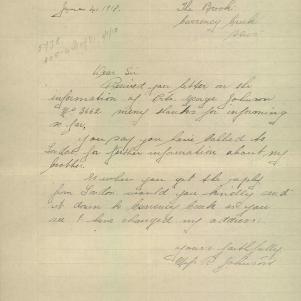 June 4. 1918.
The Brook
Currency Creek
Dear Sir
Received your letter on the
information of Pte George Johnson
No 3662 many thanks for informing
me
you say you have Cabled to
London for further information about my
brother.
when you get the reply
from London would you kindly send
it down to Currency Creek as you
see I have changed my address.
yours faithfully
Johnson